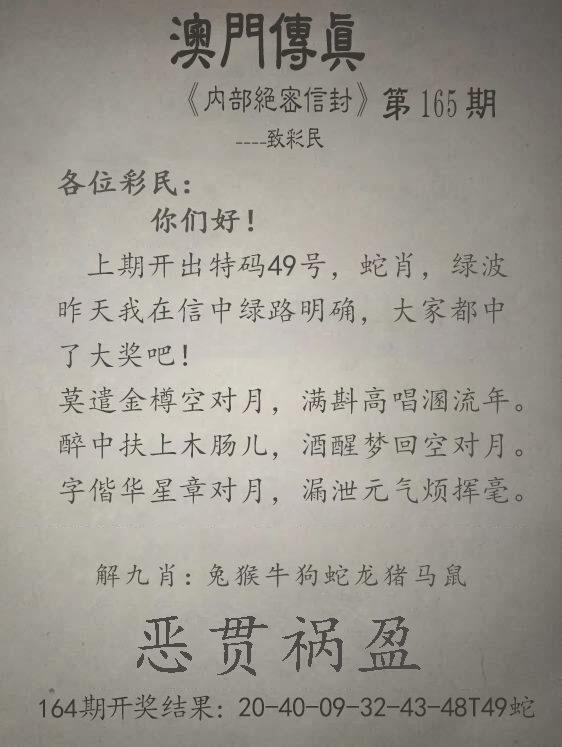 澳門傳眞
《内部絕密信封》第165期
----致彩民
各位彩民：
你们好！
上期开出特码49号，蛇肖，绿波
昨天我在信中绿路明确，大家都中
了大奖吧！
莫遣金樽空对月，满斟高唱溷流年。
醉中扶上木肠儿，酒醒梦回空对月。
字偕华星章对月，漏泄元气烦挥毫。
解九肖：兔猴牛狗蛇龙猪马鼠
恶贯祸盈
164期开奖结果：20-40-09-32-43-48T49蛇